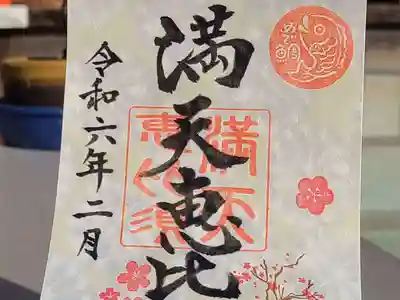 満天恵比
令和六年二月
満天
恵比須